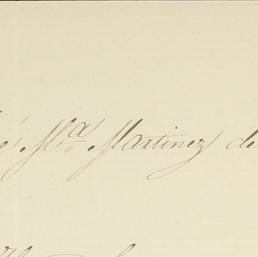 é Mª Martinez de